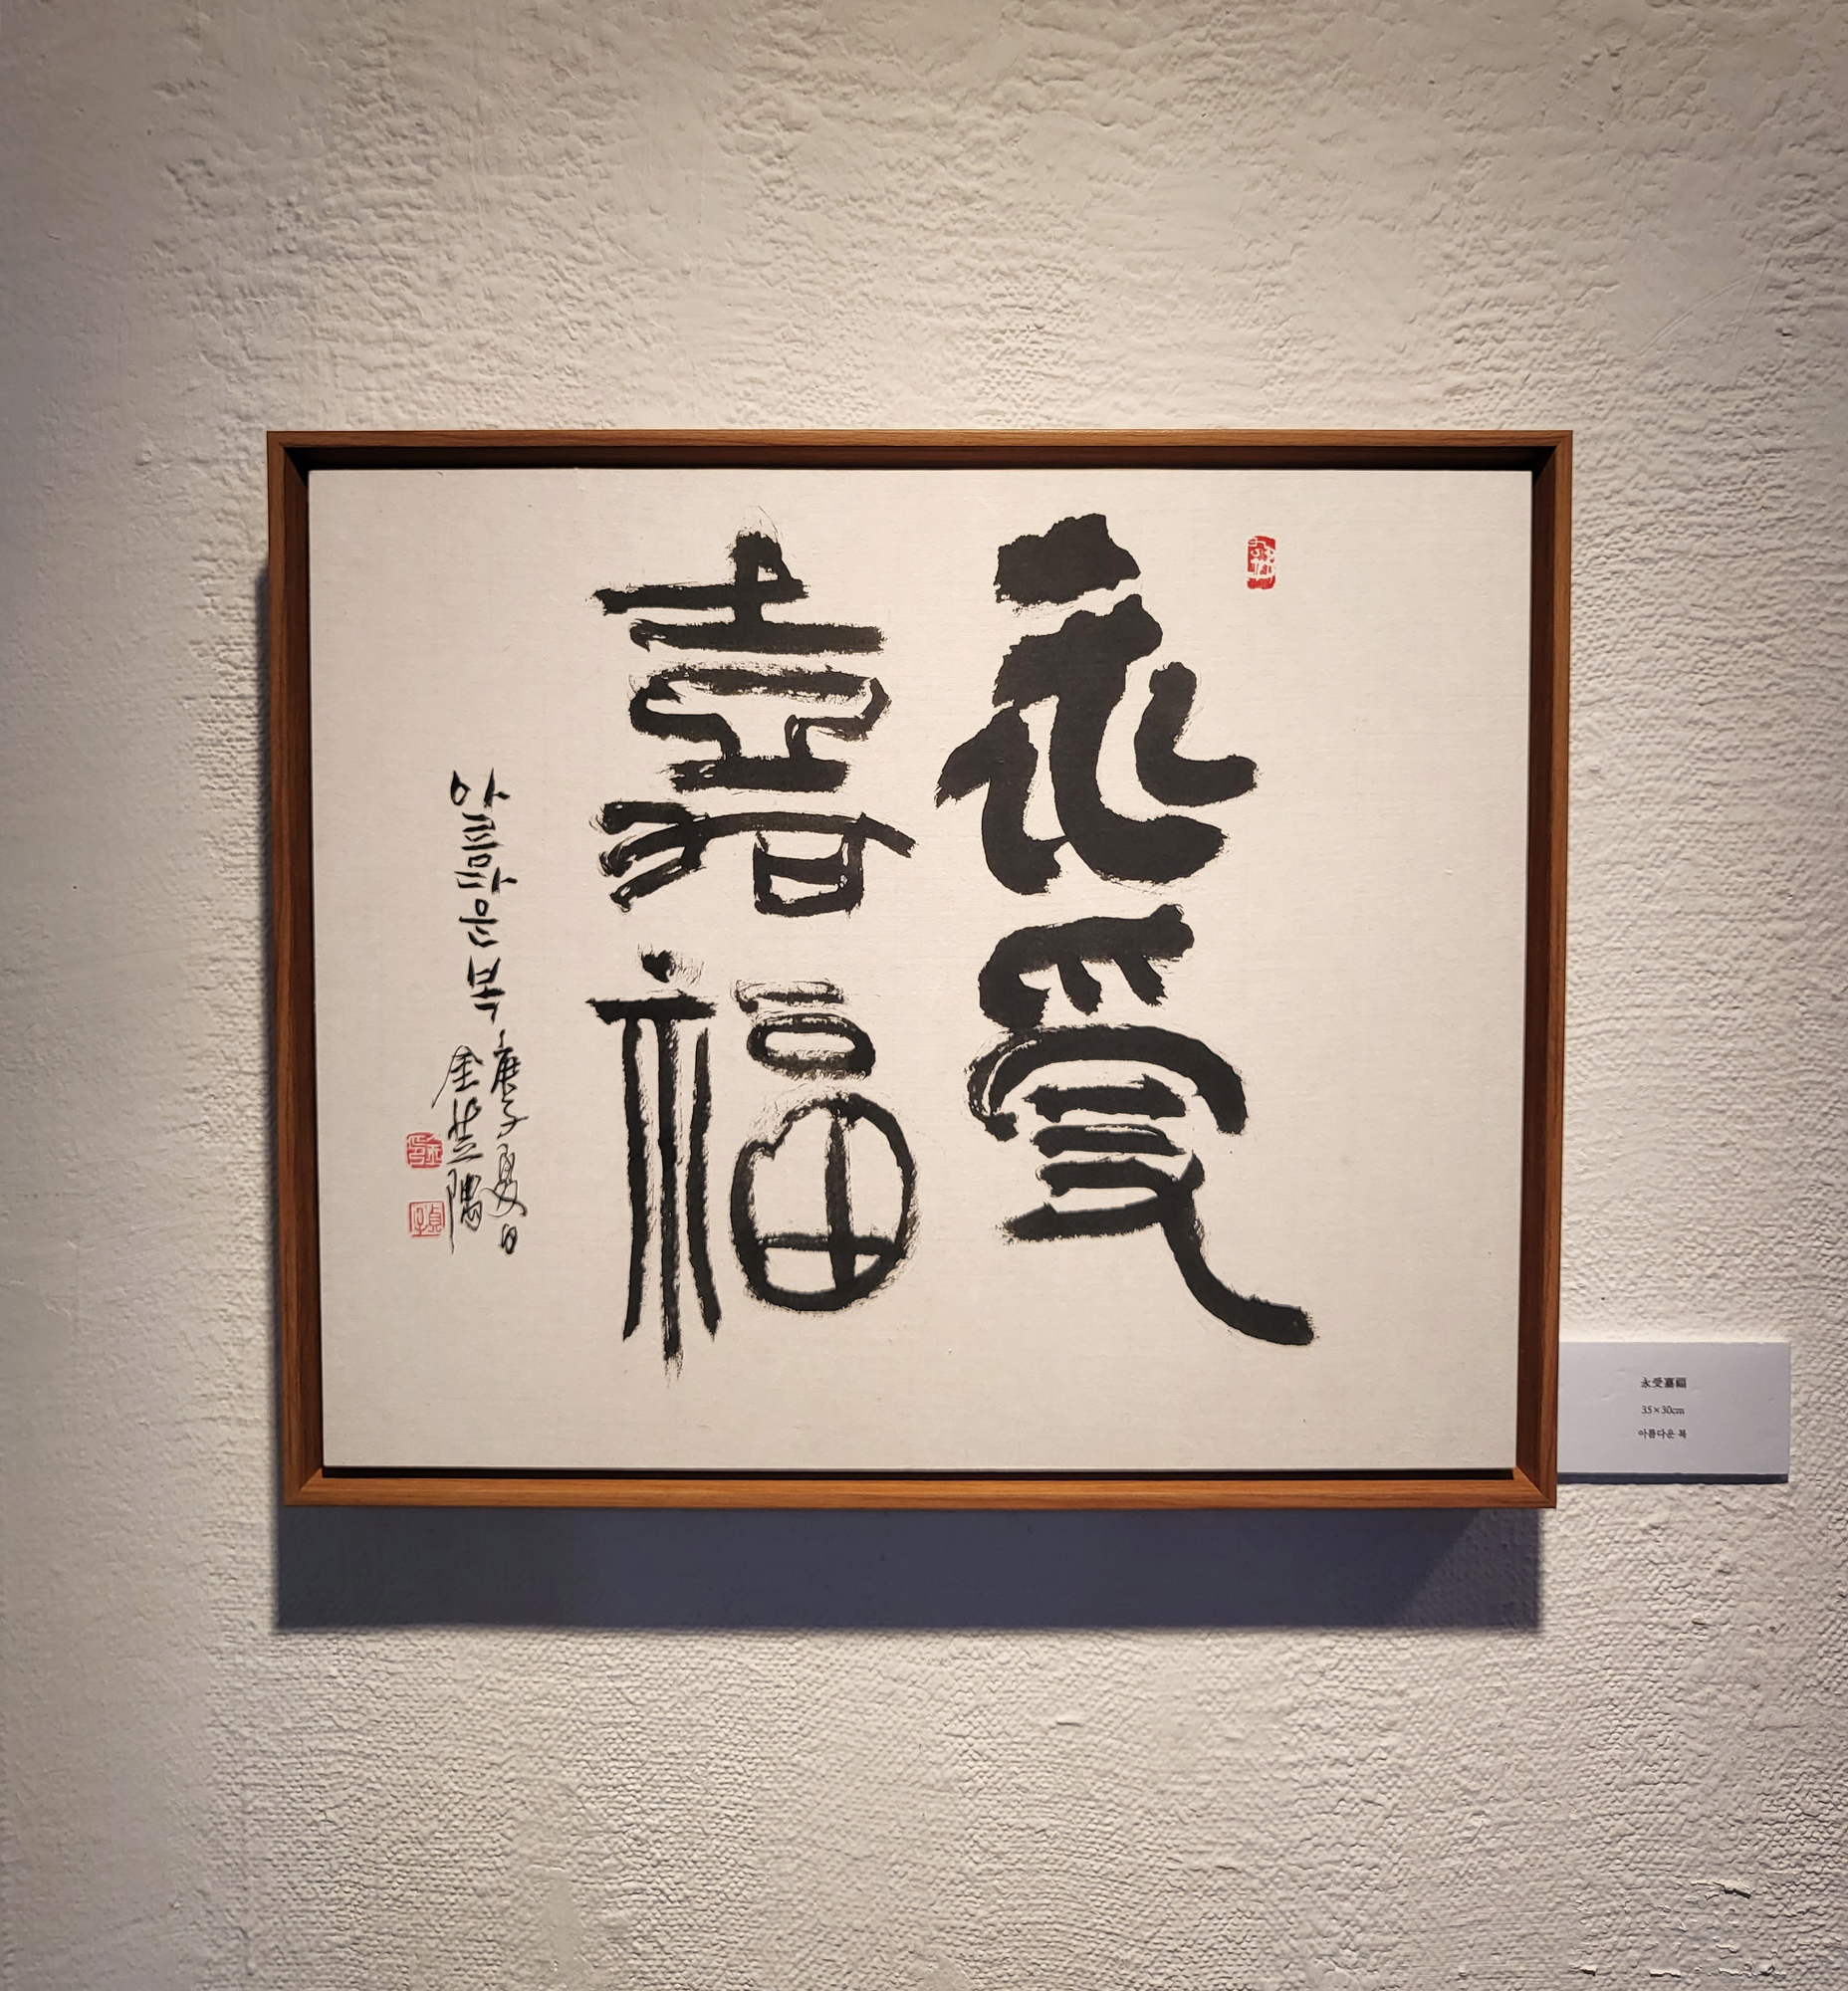 永受
嘉福
아름다운 복
庚子夏日
金芝隅
永受嘉福
35×30cm
아름다운 복